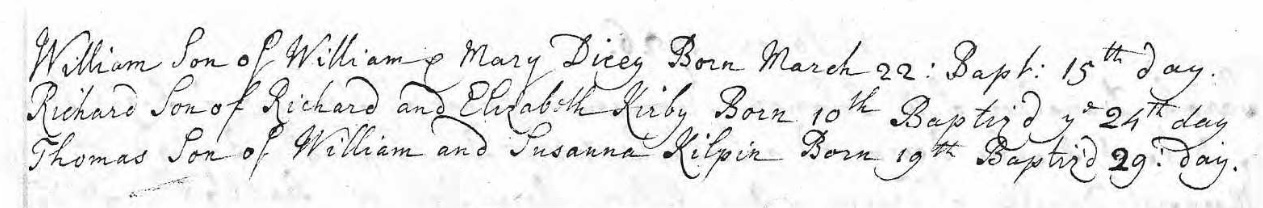 William Son of William & Mary Dicey Born March 22: Bapt: 15th day.
Richard Son of Richard and Elizabeth Kirby Born 10th Baptiz'd ye 24th day
Thomas Son of William and Susanna Kilpin Born 19th Baptiz'd 29: day.